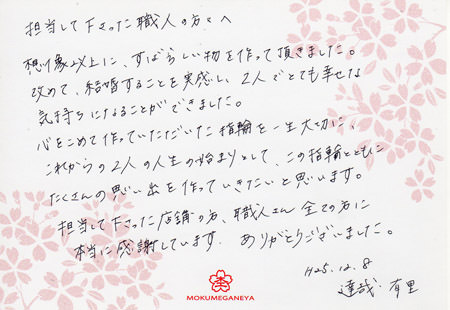 担当して下さった職人の方々へ
想像以上に、すばらしい物を作って頂きました。
改めて、結婚することを実感し、2人でとても幸せな
気持ちになることができました。
心をこめて作っていただいた指輪を一生大切に、
これからの2人の人生の始まりとして、この指輪とともに
たくさんの思い出を作っていきたいと思います。
担当して下さった店舗の方、職人さん全ての方に
本当に感謝しています。ありがとうございました。
H25.12.8
達哉・有里
MOKUMEGANEYA